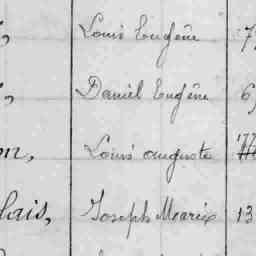 Louis Eugène 7
Daniel Eugène 6
on, Louis auguste
lais, Joseph Marie 13